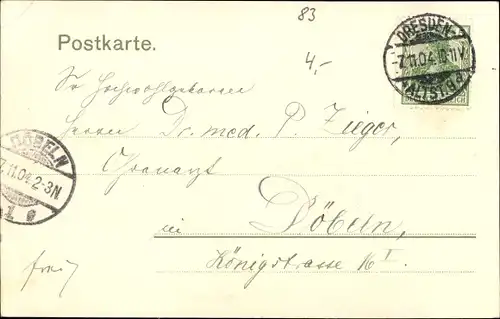 83
Postkarte.
4,-
DRESDEN-
-7.11.04.10-11V.
(ALTST.) 9
REICH
Sr Hochwohlgeboren
Herrn Dr. med. P. Zieger,
DÖBELN
7.11.04. 2-3N
in Döbeln,
Königstrasse I